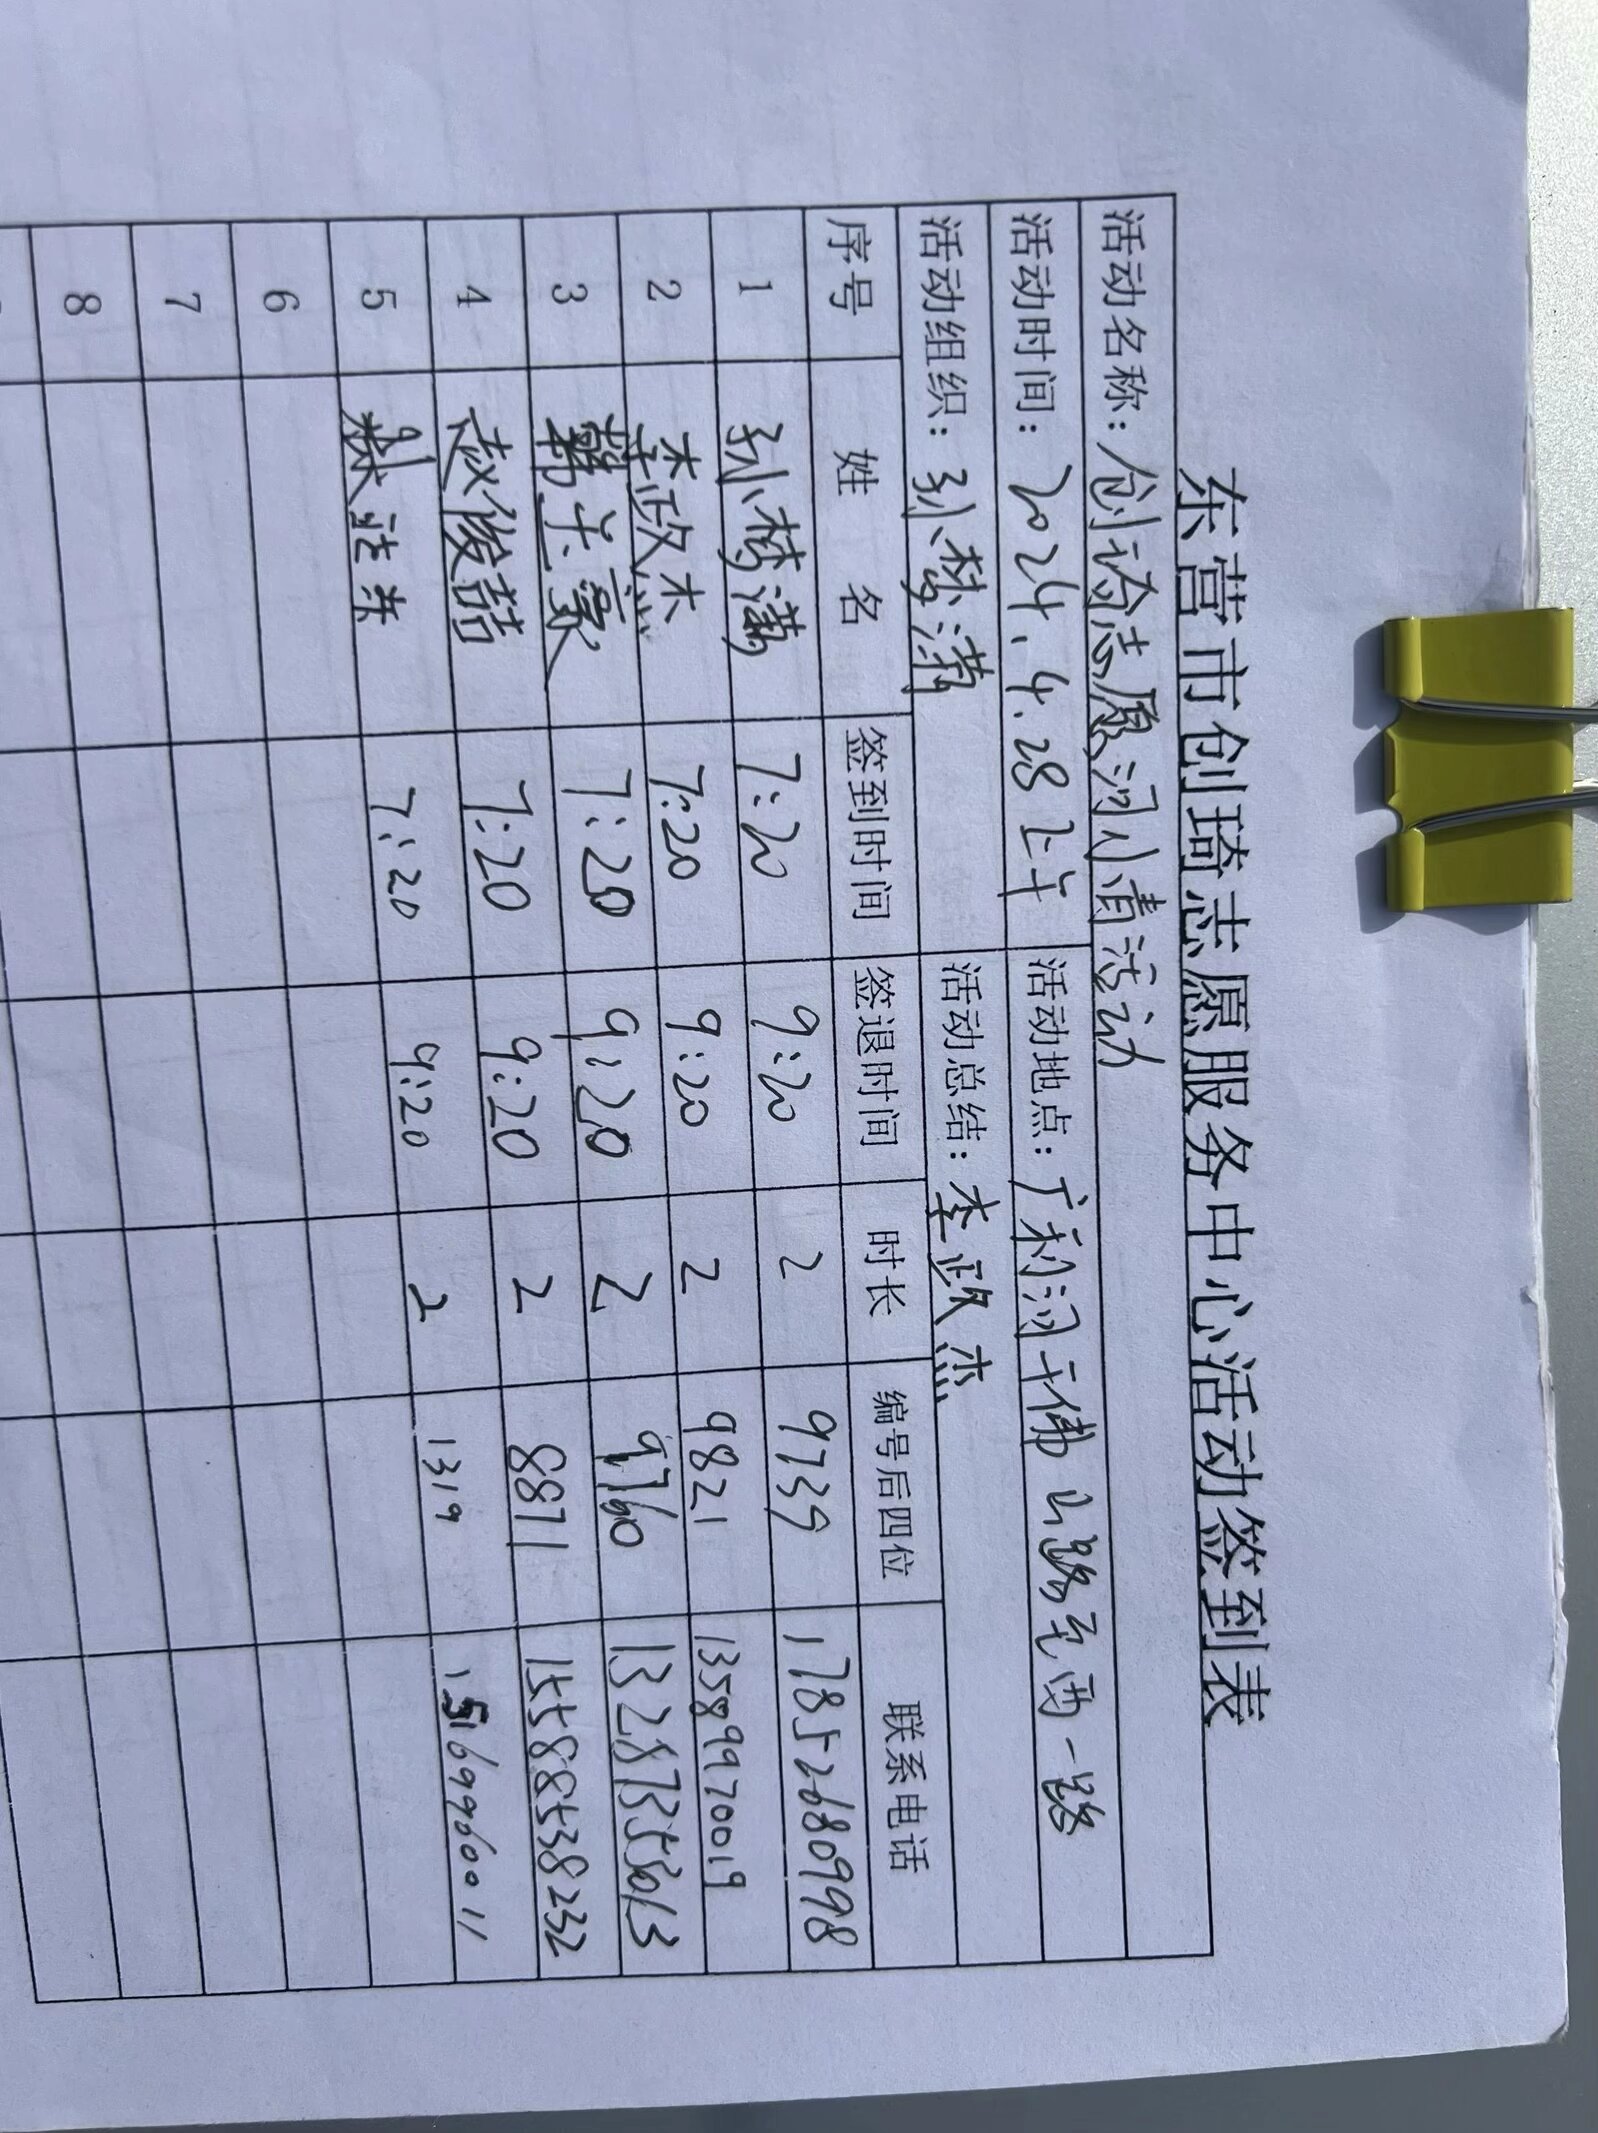 东营市创琦志愿服务中心活动签到表
活动名称：创琦志愿河小清活动
活动时间：2024.4.28上午 活动地点：广利河千佛山路至西一路
活动组织：孙梦潇 活动总结：李政杰
序号 姓名 签到时间 签退时间 时长 编号后四位 联系电话
1 孙梦潇 7:20 9:20 2 9739 17852680998
2 李政杰 7:20 9:20 2 9821 13589970019
3 7:20 9:20 2 9760
4 赵俊喆 7:20 9:20 2 8871 15588538232
5 7:20 9:20 2 1319 15169960011
6
7
8